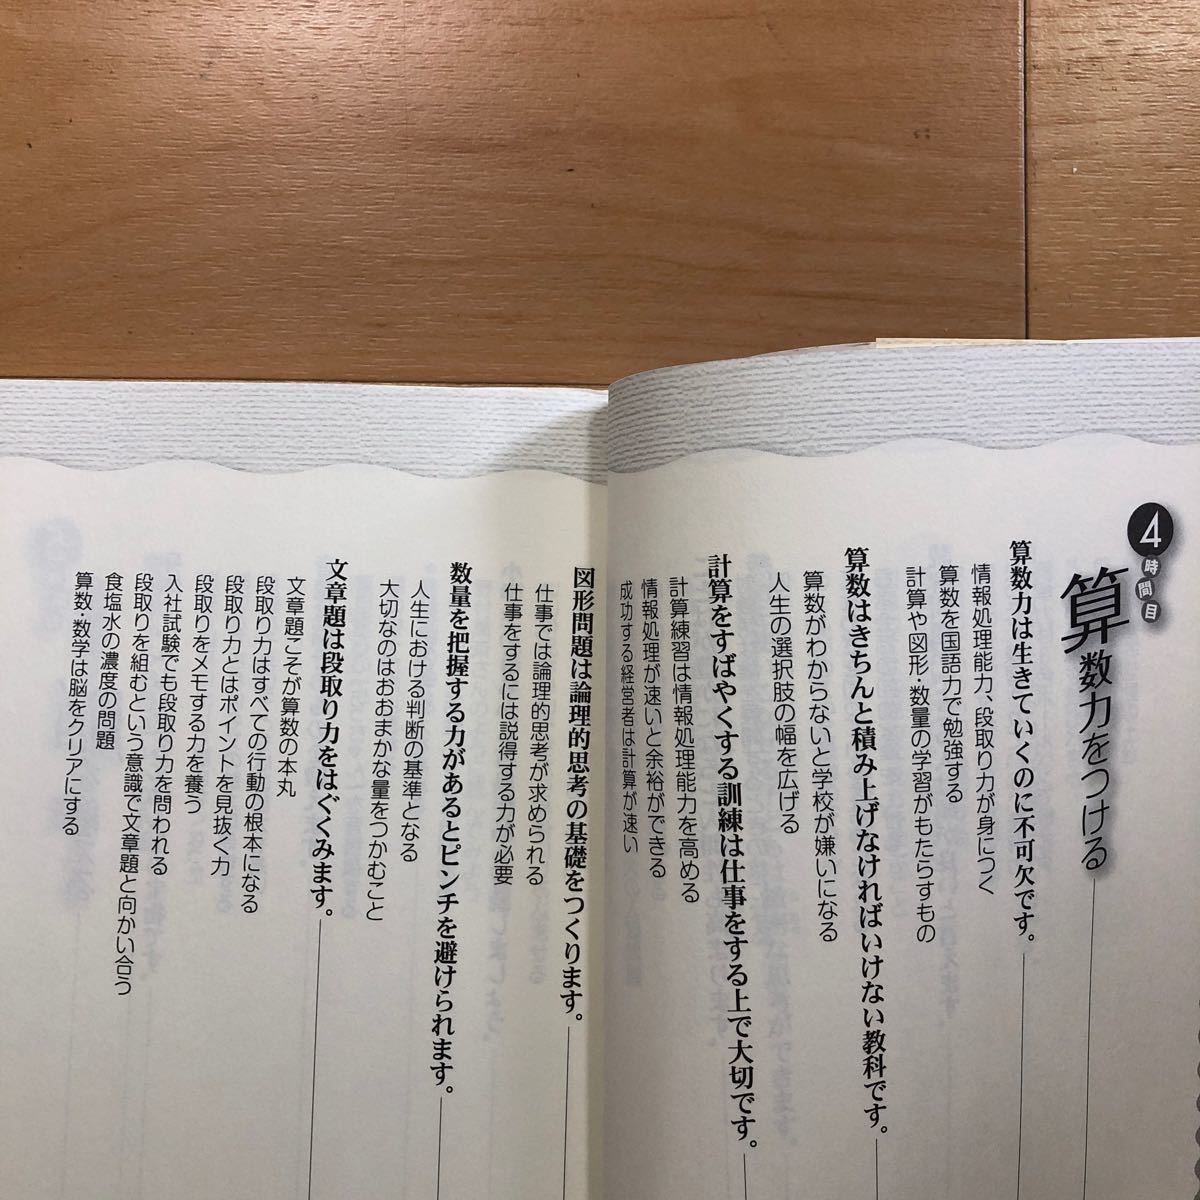 4時間目
算数力をつける
算数力は生きていくのに不可欠です。
情報処理能力、段取り力が身につく
算数を国語力で勉強する
計算や図形・数量の学習がもたらすもの
算数はきちんと積み上げなければいけない教科です。
算数がわからないと学校が嫌いになる
人生の選択肢の幅を広げる
計算をすばやくする訓練は仕事をする上で大切です。
計算練習は情報処理能力を高める
情報処理が速いと余裕ができる
成功する経営者は計算が速い
図形問題は論理的思考の基礎をつくります。
仕事では論理的思考が求められる
仕事をするには説得する力が必要
数量を把握する力があるとピンチを避けられます。
人生における判断の基準となる
大切なのはおおまかな量をつかむこと
文章題は段取り力をはぐくみます。
文章題こそが算数の本丸
段取り力はすべての行動の根本になる
段取り力とはポイントを見抜く力
段取りをメモする力を養う
入社試験でも段取り力を問われる
段取りを組むという意識で文章題と向かい合う
食塩水の濃度の問題
算数・数学は脳をクリアにする